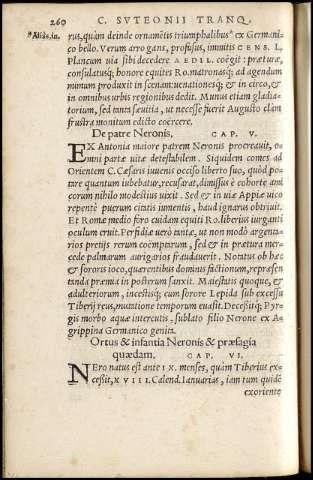 260 C. SVTEONII TRANQ.
*Aliâs, in. rus, quàm deinde ornamētis triumphalibus* ex Germani-
co bello. Verum arro gans, profusus, immitis CENS. L.
Plancum uia sibi decedere AEDIL. coëgit: præturæ,
consulatusq; honore equites Ro. matronasq; ad agendum
mimum produxit in scenam: uenationesq; & in circo, &
in omnibus urbis regionibus dedit. Munus etiam gladia-
torium, sed tanta sæuitia, ut necesse fuerit Augusto clàm
frustra monitum edicto coërcere.
De patre Neronis, CAP. V.
EX Antonia maiore patrem Neronis procreauit, o-
mni parte uitæ detestabilem. Siquidem comes ad
Orientem C. Cæsaris iuuenis occiso liberto suo, quòd po-
tare quantum iubebatur, recusarat, dimissus è cohorte ami
corum nihilo modestius uixit. Sed & in uiæ Appiæ uico
repentè puerum citatis iumentis, haud ignarus obtriuit.
Et Romæ medio foro cuidam equiti Ro. liberius iurganti
oculum eruit. Perfidiæ uerò tantæ, ut non modò argenta-
rios pretijs rerum coëmptarum, sed & in prætura mer-
cede palmarum aurigarios fraudauerit. Notatus ob hæc
& sororis ioco, querentibus dominis factionum, repræsen
tanda præmia in posterum sanxit. Maiestatis quoque, &
adulteriorum, incestiq; cum sorore Lepida sub excessu
Tiberij reus, mutatione temporum euasit. Decessitq; Pyr-
gis morbo aquæ intercutis, sublato filio Nerone ex A-
grippina Germanico genita.
Ortus & infantia Neronis & præsagia
quædam, CAP. VI.
NEro natus est ante IX. menses, quàm Tiberius ex-
cessit, XVIII. Calend. Ianuarias, iam tum quidē
exoriente